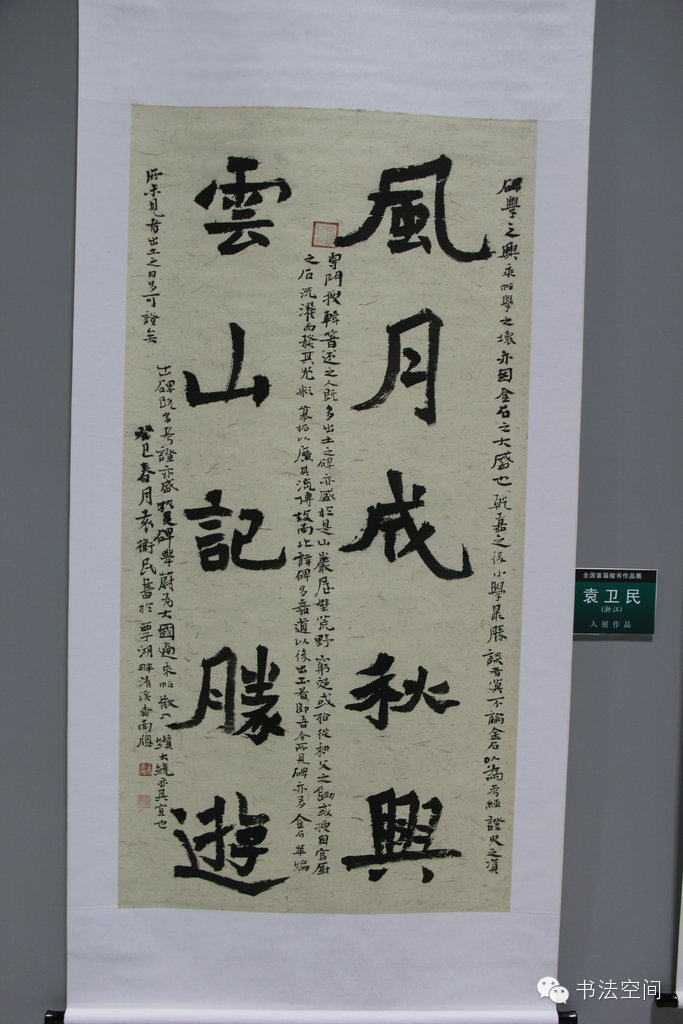 碑學之興乘帖學之壞亦因金石之大盛也乾嘉之後小學最勝談者莫不論金石以為考經證史之資
風月成秋興
專門搜輯著述之人既多出土之碑亦盛於是山巖屋壁荒野窮逕或拾從耕父之鋤或搜自官廚
之石洗濯而發其光彩摹拓以廣其流傳故南北諸碑多嘉道以後出土者即吾今所見碑亦多金石萃編
雲山記勝遊
所未見者出土之日多可證矣
出碑既多考證亦盛於是碑學蔚为大國適乘帖微入纘大統亦其宜也
癸巳春月袁衛民書於湖畔清溪齋南牖
全国首届楷书作品展
袁卫民
(浙江)
入展作品
书法空间